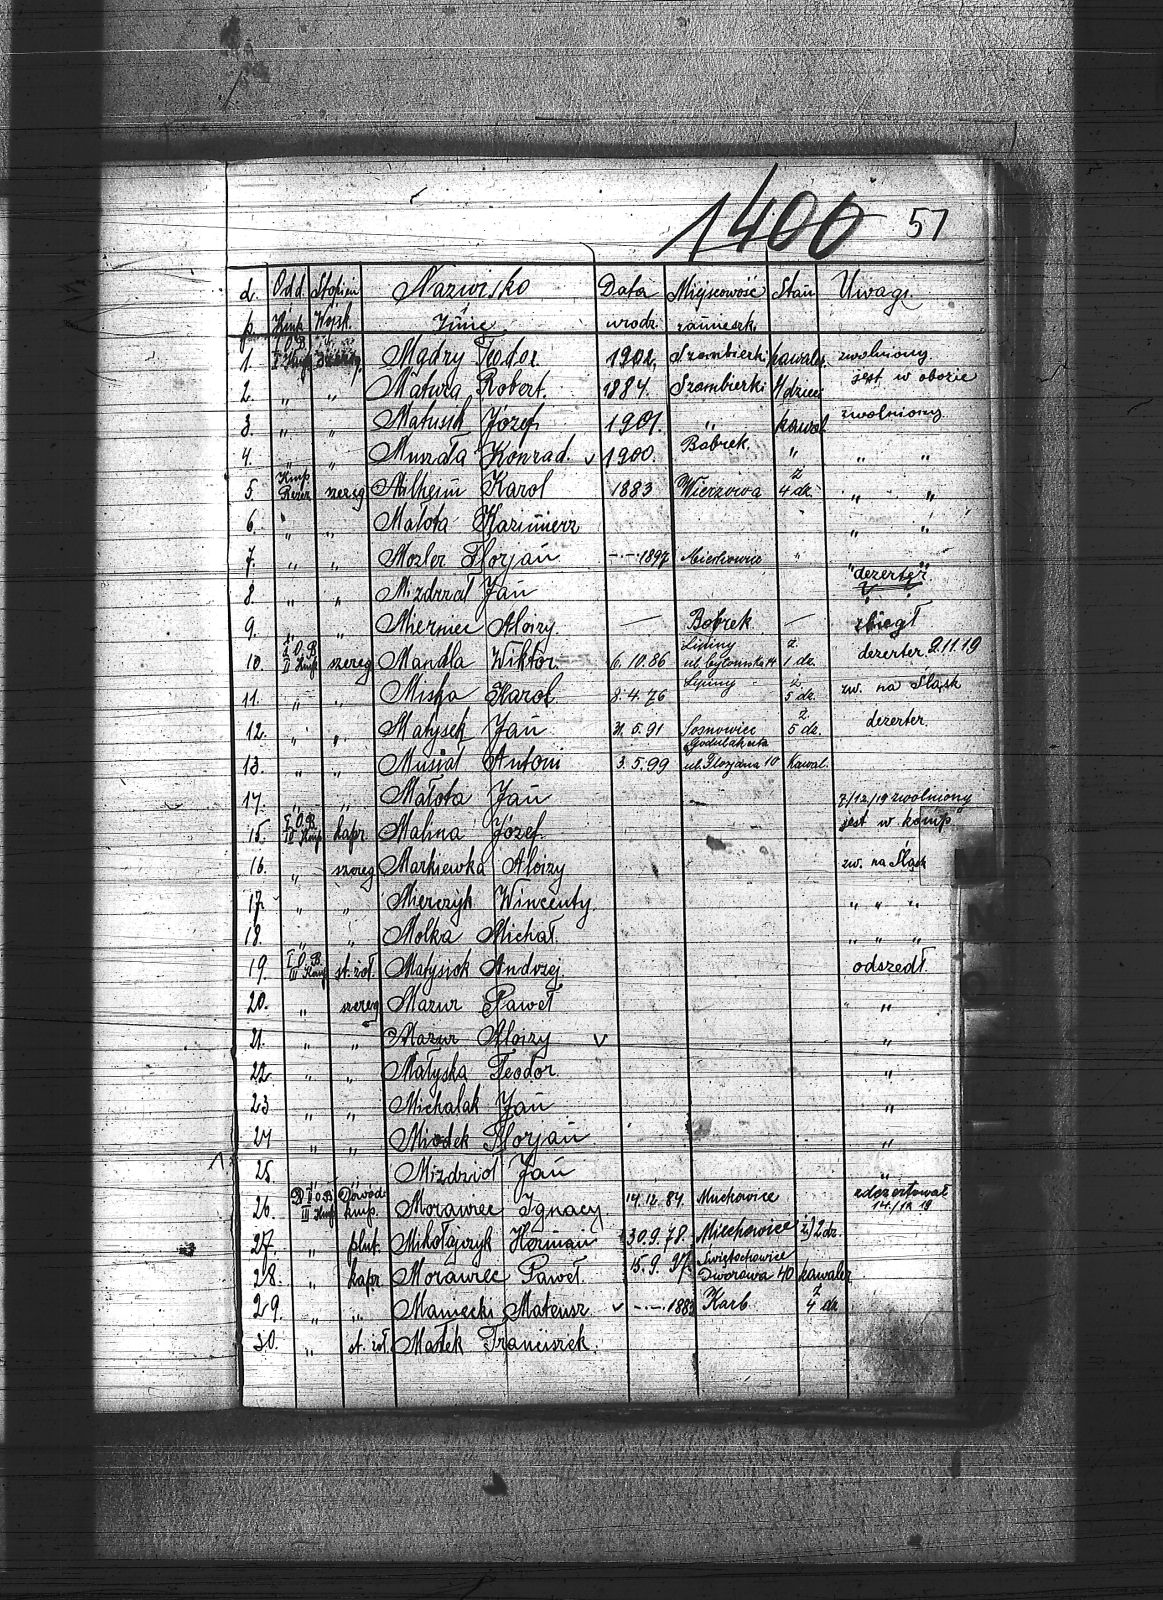 1400 51
L. Odd. Stopień Nazwisko Data Miejscowość Stan Uwagi
p. Kmp. Wojsk. Imię urodz. zamieszk.
1. Mądry Teodor 1902. Szombierki kawaler zwolniony
2. " " Matura Robert. 1884. Szombierki 4 dzieci jest w obozie
3. " " Matusik Józef 1901. " kawal. zwolniony
4. " " Muszała Konrad. v 1900. Bobrek " " "
5. Kmp. Rezer. szereg Malheim Karol 1883 Wieszowa ż 4 dz. " "
6. " " Małota Kazimierz " "
7. " " Mozler Florjan -·-·1897 "
8. " " Mizdrzal Jan "dezerter"
9. " " Mierniec Aloizy — Bobrek — zbiegł
10. I O.B. II Kmp szereg Mandla Wiktor 6.10.86 Lipiny ul. Bytomska 14 ż. 1 dz. dezerter 9.11.19
11. " " Miska Karol 8.4.76 Lipiny ż. 5 dz. zw. na Śląsk
12. " " Matysek Jan 31.5.91 Sosnowiec ż 5 dz. dezerter.
13. " " Musiał Antoni 3.5.99 Godulahuta ul. Florjana 10 kawal.
14. " " Małota Jan 7/12/19 zwolniony
15. I O.B. II Kmp kapr. Malina Józef jest w komp
16. " szereg Markiewka Aloizy zw. na Śląsk
17. " " Mierczyk Wincenty " " "
18. " " Molka Michał. " " "
19. I O.B. III Kmp st. żoł. Matysiok Andrzej. odszedł.
20. " szereg Mazur Paweł "
21. " " Mazur Aloizy v "
22 " " Małyska Teodor. "
23 " " Michalak Jan "
24 " " Miodek Florjan "
25 " " Mizdziol Jan "
26. I O.B III Kmp Dowód. kmp. Morawiec Ignacy 14.12.84. Miechowice zdezertował
27. " plut. Mikołajczyk Herman 30.9.78. Miechowice ż) 2 dz.
28. " kapr. Morawiec Paweł 15.9.97. Świętochowice Dworowa 40 kawaler
29. " " Maniecki Mateusz v -·-·1883 Karb ż 4 dz
30. " st. żoł. Małek Franciszek.